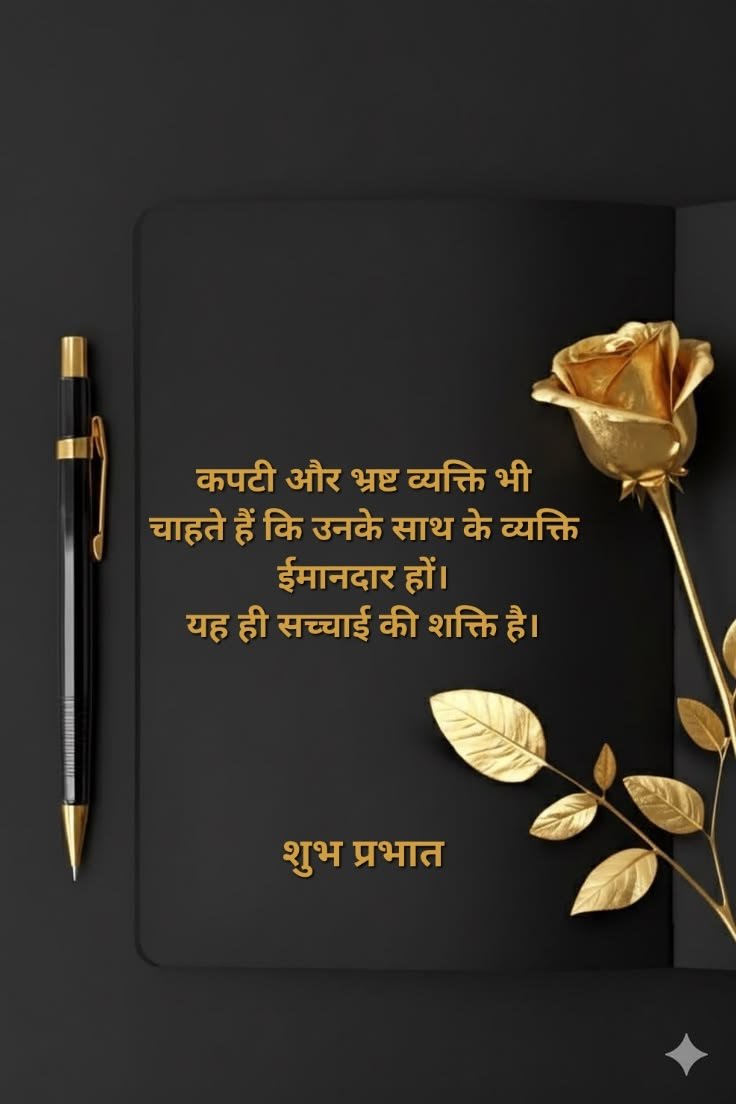 कपटी और भ्रष्ट व्यक्ति भी
चाहते हैं कि उनके साथ के व्यक्ति
ईमानदार हों।
यह ही सच्चाई की शक्ति है।
शुभ प्रभात